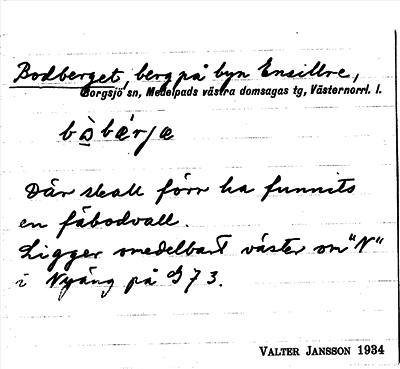 Bodberget, berg på byn Ensillre,
Borgsjö sn, Medelpads västra domsagas tg, Västernorrl. l.
Där skall förr ha funnits
en fäbodvall.
Ligger omedelbart väster om "N"
i Nyäng på G 73.
VALTER JANSSON 1934